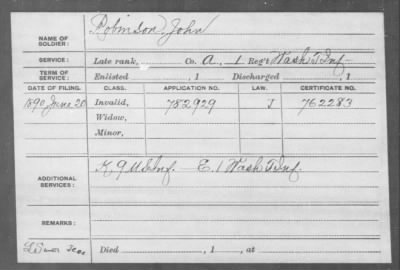 NAME OF SOLDIER: Robinson, John
SERVICE: Late rank, Co. A, 1 Reg't Wash T Inf.
TERM OF SERVICE: Enlisted , 1 Discharged , 1
DATE OF FILING. CLASS. APPLICATION NO. LAW. CERTIFICATE NO.
1890 June 20 Invalid, 782929 J 762283
Widow,
Minor,
ADDITIONAL SERVICES: K. 9 U S Inf. — E. 1 Wash T Inf.
REMARKS:
Died , 1 , at